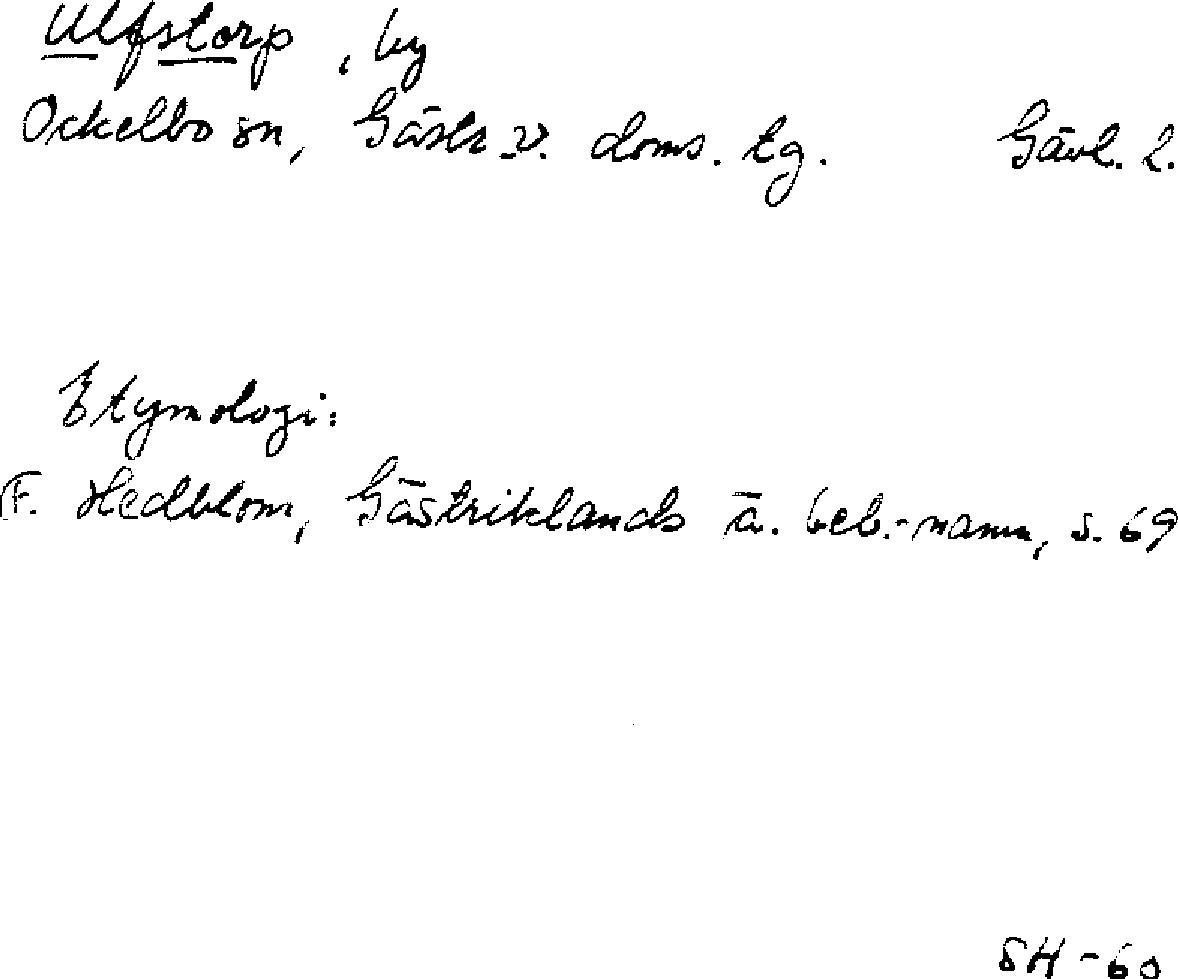 Ulfstorp, by
Ockelbo sn, Gästr. v. doms. tg. Gävl. l.
Etymologi:
F. Hedblom, Gästriklands ä. beb.-namn, s. 69
SH-60